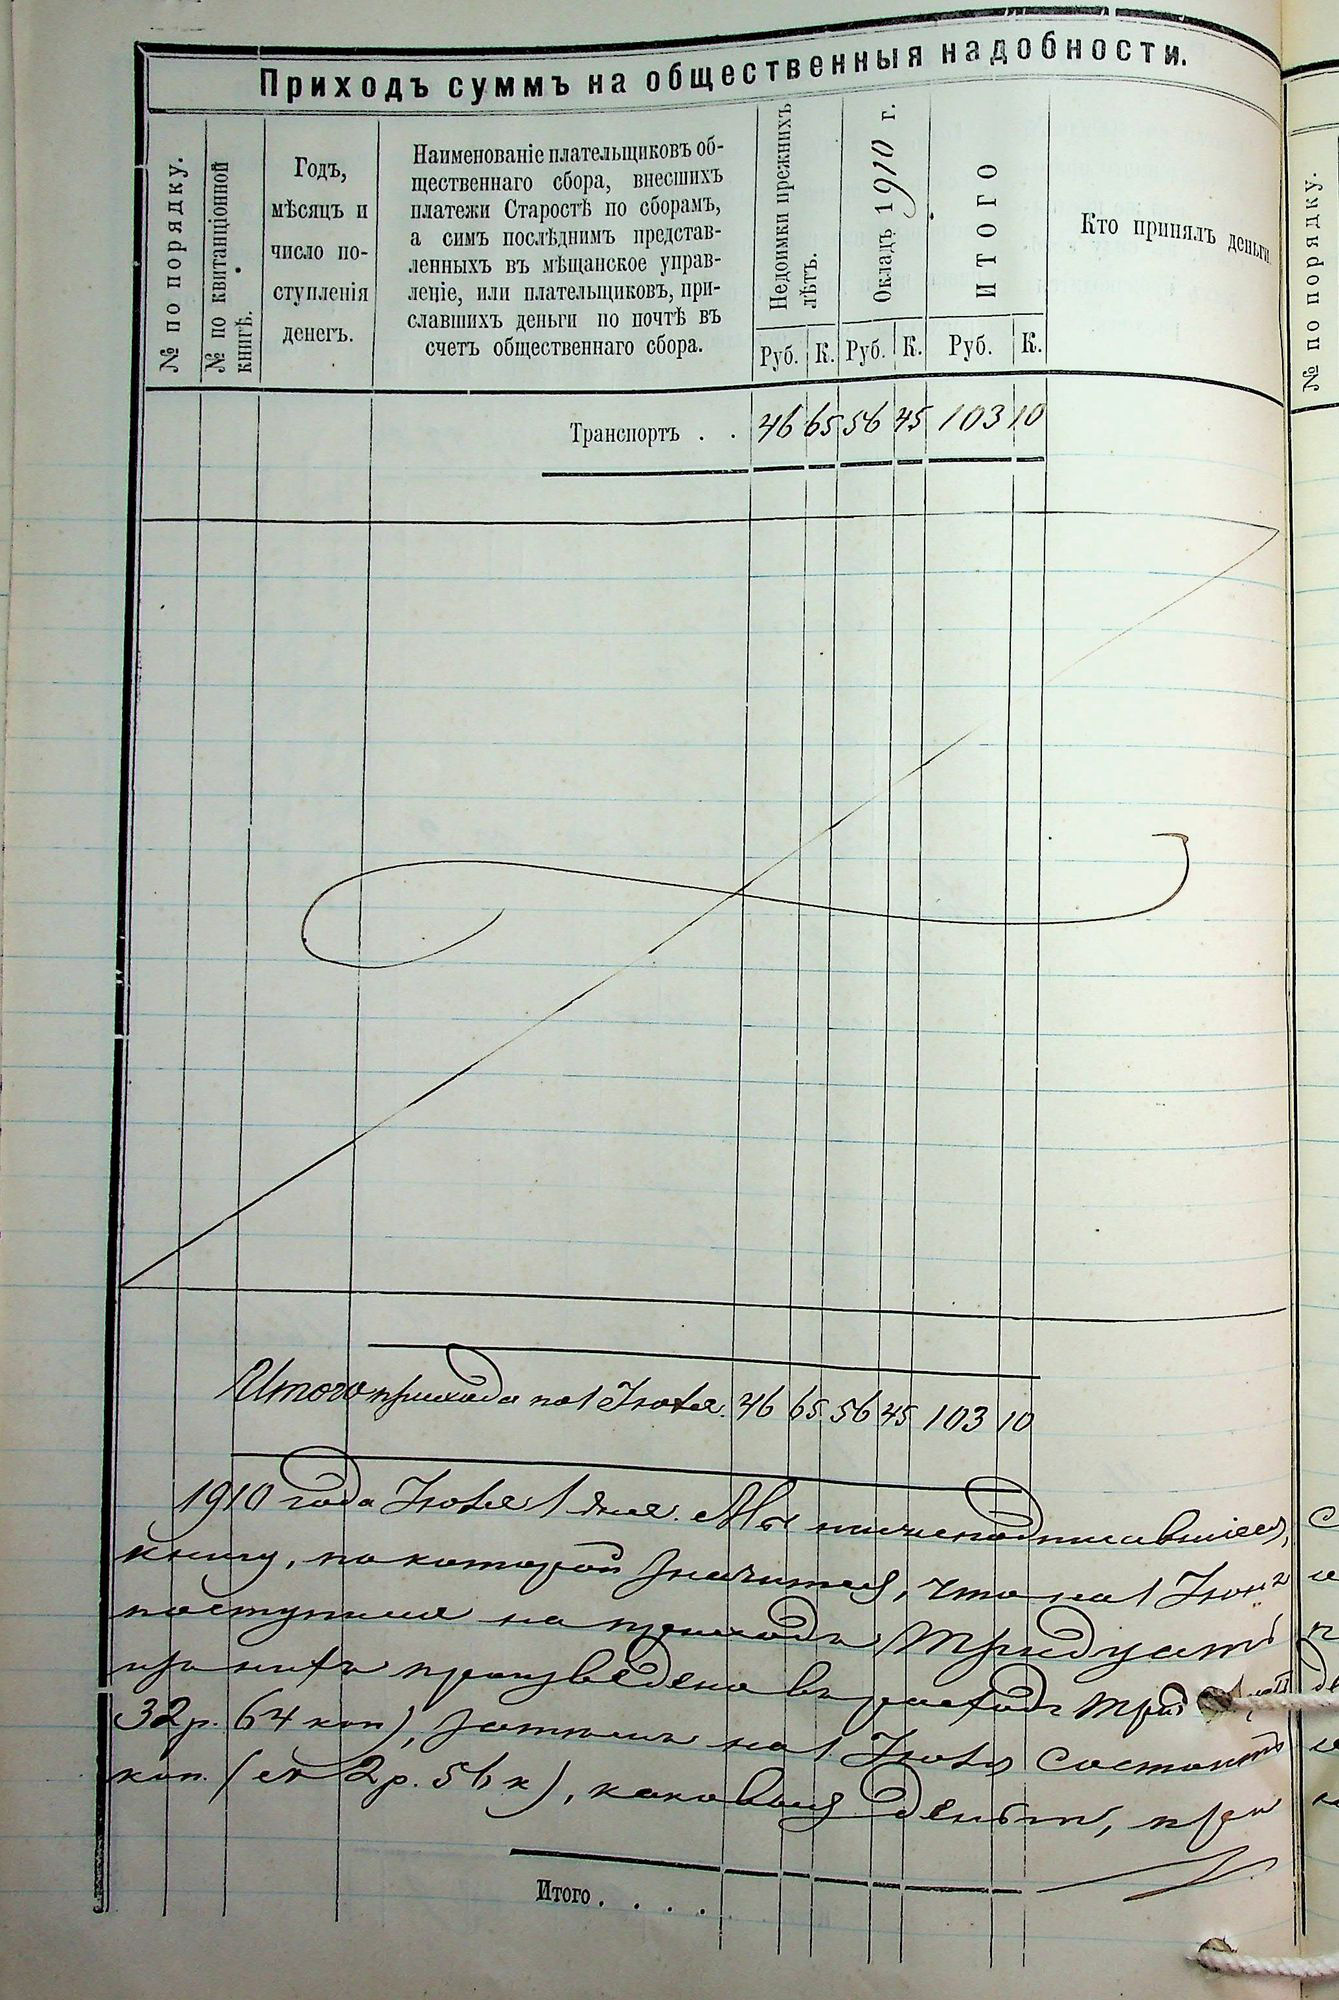 Приходъ суммъ на общественныя надобности.
№ по порядку.
№ по квитанціонной
книгѣ.
Годъ,
мѣсяцъ и
число по-
ступленія
денегъ.
Наименованіе плательщиковъ об-
щественнаго сбора, внесшихъ
платежи Старостѣ по сборамъ,
а симъ послѣднимъ представ-
ленныхъ въ мѣщанское управ-
леніе, или плательщиковъ, при-
славшихъ деньги по почтѣ въ
счетъ общественнаго сбора.
Недоимки прежнихъ
лѣтъ.
Окладъ 1910 г.
ИТОГО
Руб. К. Руб. К. Руб. К.
Кто принялъ деньги.
№ по порядку.
Транспортъ . . 46 65 56 45 103 10
Итого прихода по 1 Іюля. 46 65 56 45 103 10
1910 года Іюля 1 дня. Мы нижеподписавшіеся,
книгу, по которой значится, что на 1 Іюня
поступило на приходъ тридцать
изъ нихъ произведено въ расходъ
32 р. 64 коп), затѣмъ на 1 Іюля состоитъ
коп. ( 2 р. 56 к), каковыя деньги, при
Итого . . . . .